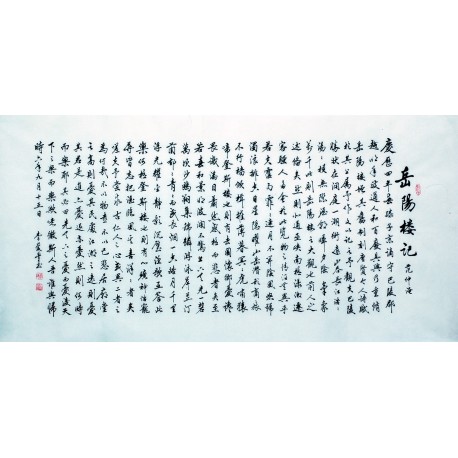 岳陽楼記
范仲淹
慶曆四年春滕子京謫守巴陵郡
越明年政通人和百廢具興乃重修
岳陽樓增其舊制刻唐賢今人詩賦
於其上屬予作文以記之予觀夫巴陵
勝狀在洞庭一湖銜遠山吞長江浩浩
湯湯橫無際涯朝暉夕陰氣象
萬千此則岳陽樓之大觀也前人之
述備矣然則北通巫峽南極瀟湘遷
客騷人多會於此覽物之情得無異乎
若夫霪雨霏霏連月不開陰風怒號
濁浪排空日星隱耀山岳潛形商旅
不行檣傾楫摧薄暮冥冥虎嘯猿
啼登斯樓也則有去國懷鄉憂讒
畏譏滿目蕭然感極而悲者矣至
若春和景明波瀾不驚上下天光一碧
萬頃沙鷗翔集錦鱗游泳岸芷汀
蘭郁郁青青而或長煙一空皓月千里
浮光躍金靜影沉璧漁歌互答此
樂何極登斯樓也則有心曠神怡寵
辱皆忘把酒臨風其喜洋洋者矣
嗟夫予嘗求古仁人之心或異二者之
為何哉不以物喜不以己悲居廟堂
之高則憂其民處江湖之遠則憂
其君是進亦憂退亦憂然則何時
而樂耶其必曰先天下之憂而憂後天
下之樂而樂歟噫微斯人吾誰與歸
時六年九月十五日